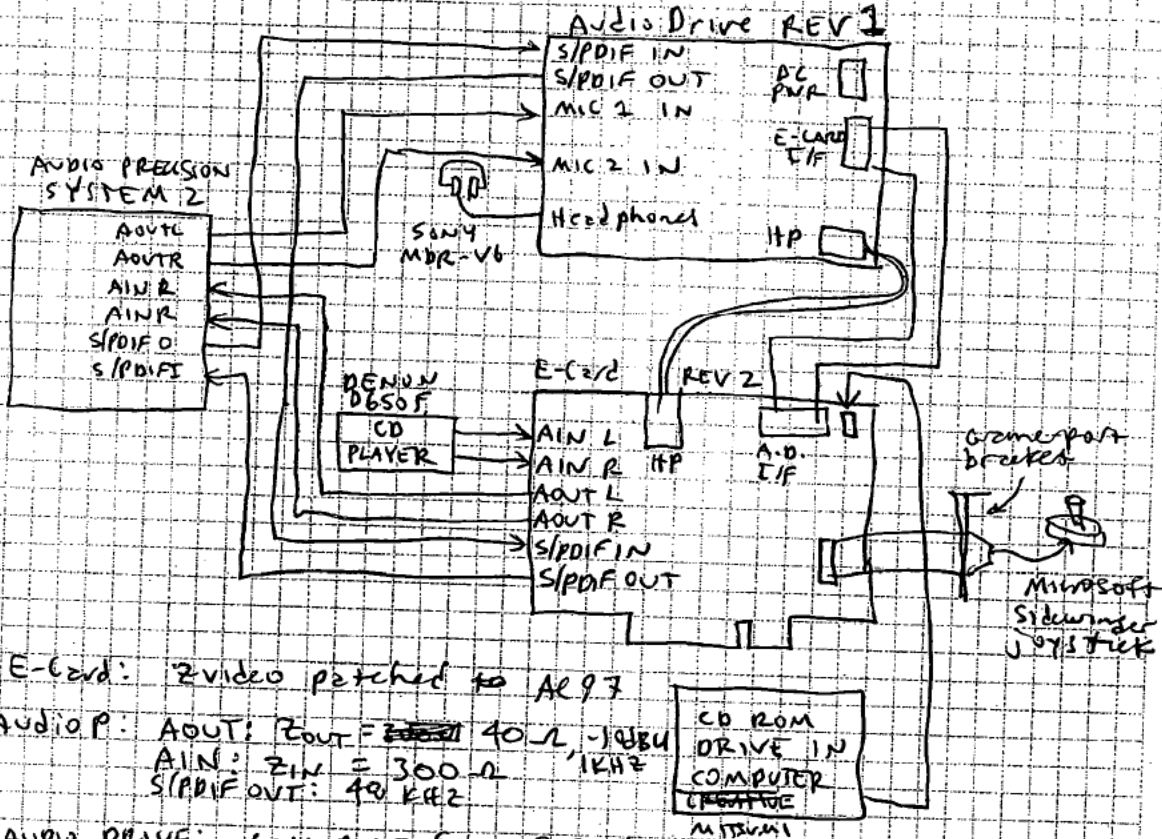 Audio Drive REV 1
S/PDIF IN
S/PDIF OUT
MIC 1 IN
MIC 2 IN
Headphones
DC
PWR
E-CARD
I/F
HP
AUDIO PRECISION
SYSTEM 2
AOUTL
AOUTR
AIN R
AINR
S/PDIF O
S/PDIFI
SONY
MDR-V6
E-Card REV 2
DENON
D650F
CD
PLAYER
AIN L
AIN R
AOUT L
AOUT R
S/PDIF IN
S/PDIF OUT
HP
A.D.
I/F
Gameport
bracket
Microsoft
Sidewinder
joystick
E-Card: Zvideo patched to AC97
Audio P: AOUT: ZOUT = 40Ω, -10dBu
1KHZ
AIN: ZIN = 300Ω
S/PDIF OUT: 48 KHZ
CD ROM
DRIVE IN
COMPUTER
CREATIVE
Mitsumi
AUDIO DRIVE: